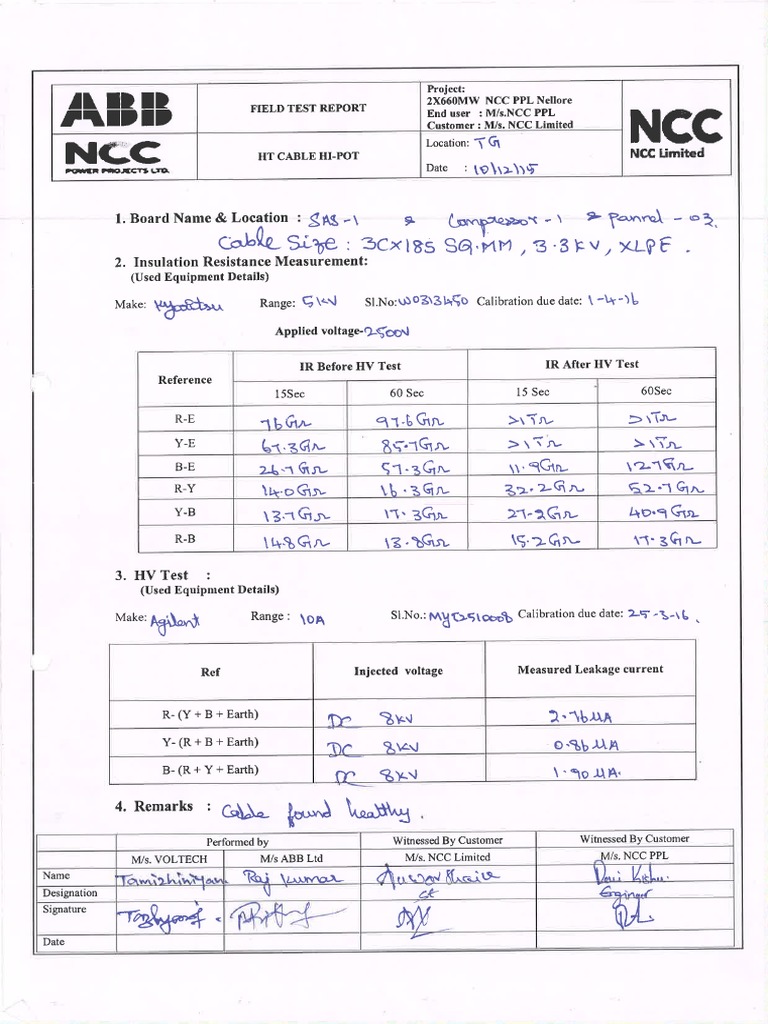 ABB
FIELD TEST REPORT
Project:
2X660MW NCC PPL Nellore
End user : M/s.NCC PPL
Customer : M/s. NCC Limited
NCC
NCC Limited
NCC
POWER PROJECTS LTD.
HT CABLE HI-POT
Location: TG
Date : 10/12/15
1. Board Name & Location : SAS-1 & Compressor-1 & pannel - 03.
Cable Size : 3CX185 SQ.MM, 3.3KV, XLPE .
2. Insulation Resistance Measurement:
(Used Equipment Details)
Make: Range: 5KV Sl.No: W0313450 Calibration due date: 1-4-16
Applied voltage-2500V
Reference IR Before HV Test IR After HV Test
15Sec 60 Sec 15 Sec 60Sec
R-E 76GΩ 97.6GΩ >1TΩ >1TΩ
Y-E 67.3GΩ 85.7GΩ >1TΩ >1TΩ
B-E 26.7GΩ 57.3GΩ 11.9GΩ 127GΩ
R-Y 14.0GΩ 16.3GΩ 32.2GΩ 52.7GΩ
Y-B 13.7GΩ 17.3GΩ 27.2GΩ 40.9GΩ
R-B 14.8GΩ 13.8GΩ 15.2GΩ 17.3GΩ
3. HV Test :
(Used Equipment Details)
Make: Agilent Range : 10A Sl.No.: Calibration due date: 25-3-16.
Ref Injected voltage Measured Leakage current
R- (Y + B + Earth) DC 8KV 2.76µA
Y- (R + B + Earth) DC 8KV 0.86µA
B- (R + Y + Earth) DC 8KV 1.90µA.
4. Remarks : Cable found healthy.
Performed by Witnessed By Customer Witnessed By Customer
M/s. VOLTECH M/s ABB Ltd M/s. NCC Limited M/s. NCC PPL
Name Tamizhiniyan. Raj Kumar
Designation Engineer
Signature
Date